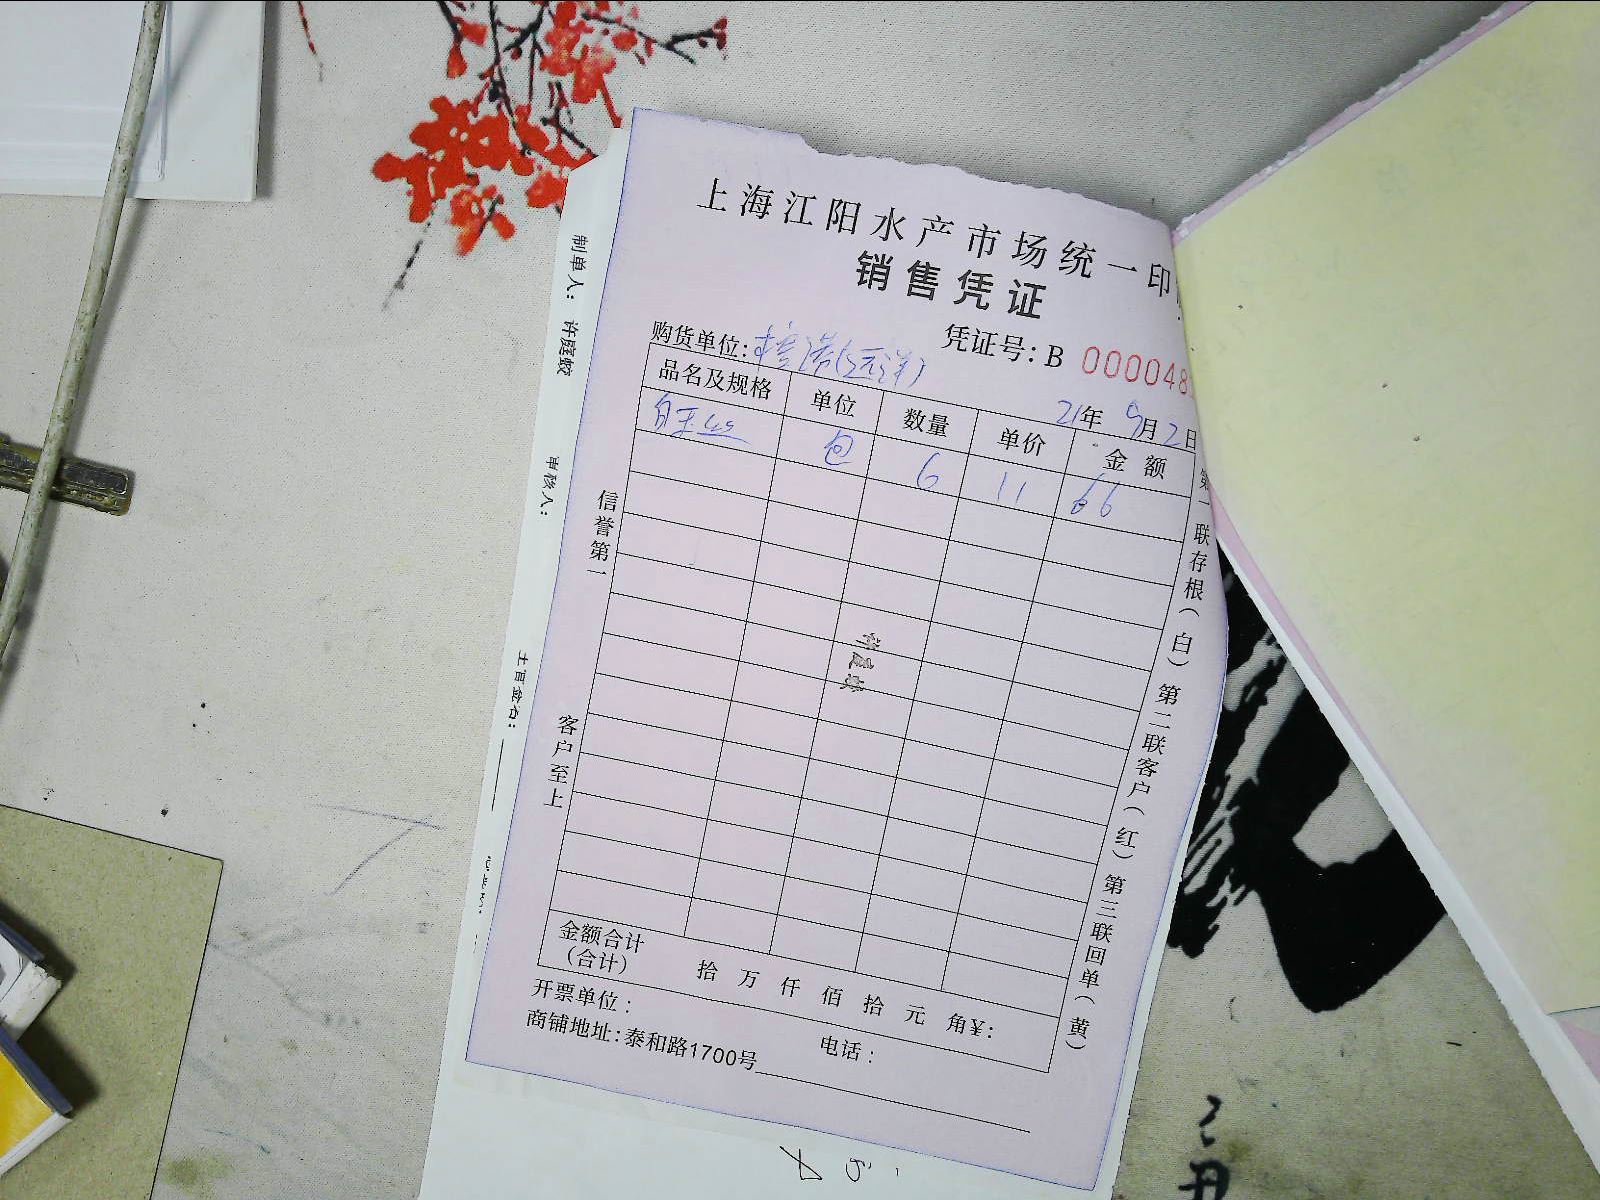 上海江阳水产市场统一印
销售凭证
凭证号：B 000048
购货单位：
21年 9月2日
品名及规格 单位 数量 单价 金额
包 6 11 66
信誉第一
客户至上
第一联存根（白）第二联客户（红）第三联回单（黄）
金额合计
（合计） 拾 万 仟 佰 拾 元 角¥：
开票单位：
电话：
商铺地址：泰和路1700号
制单人： 许庭蛟
审核人：